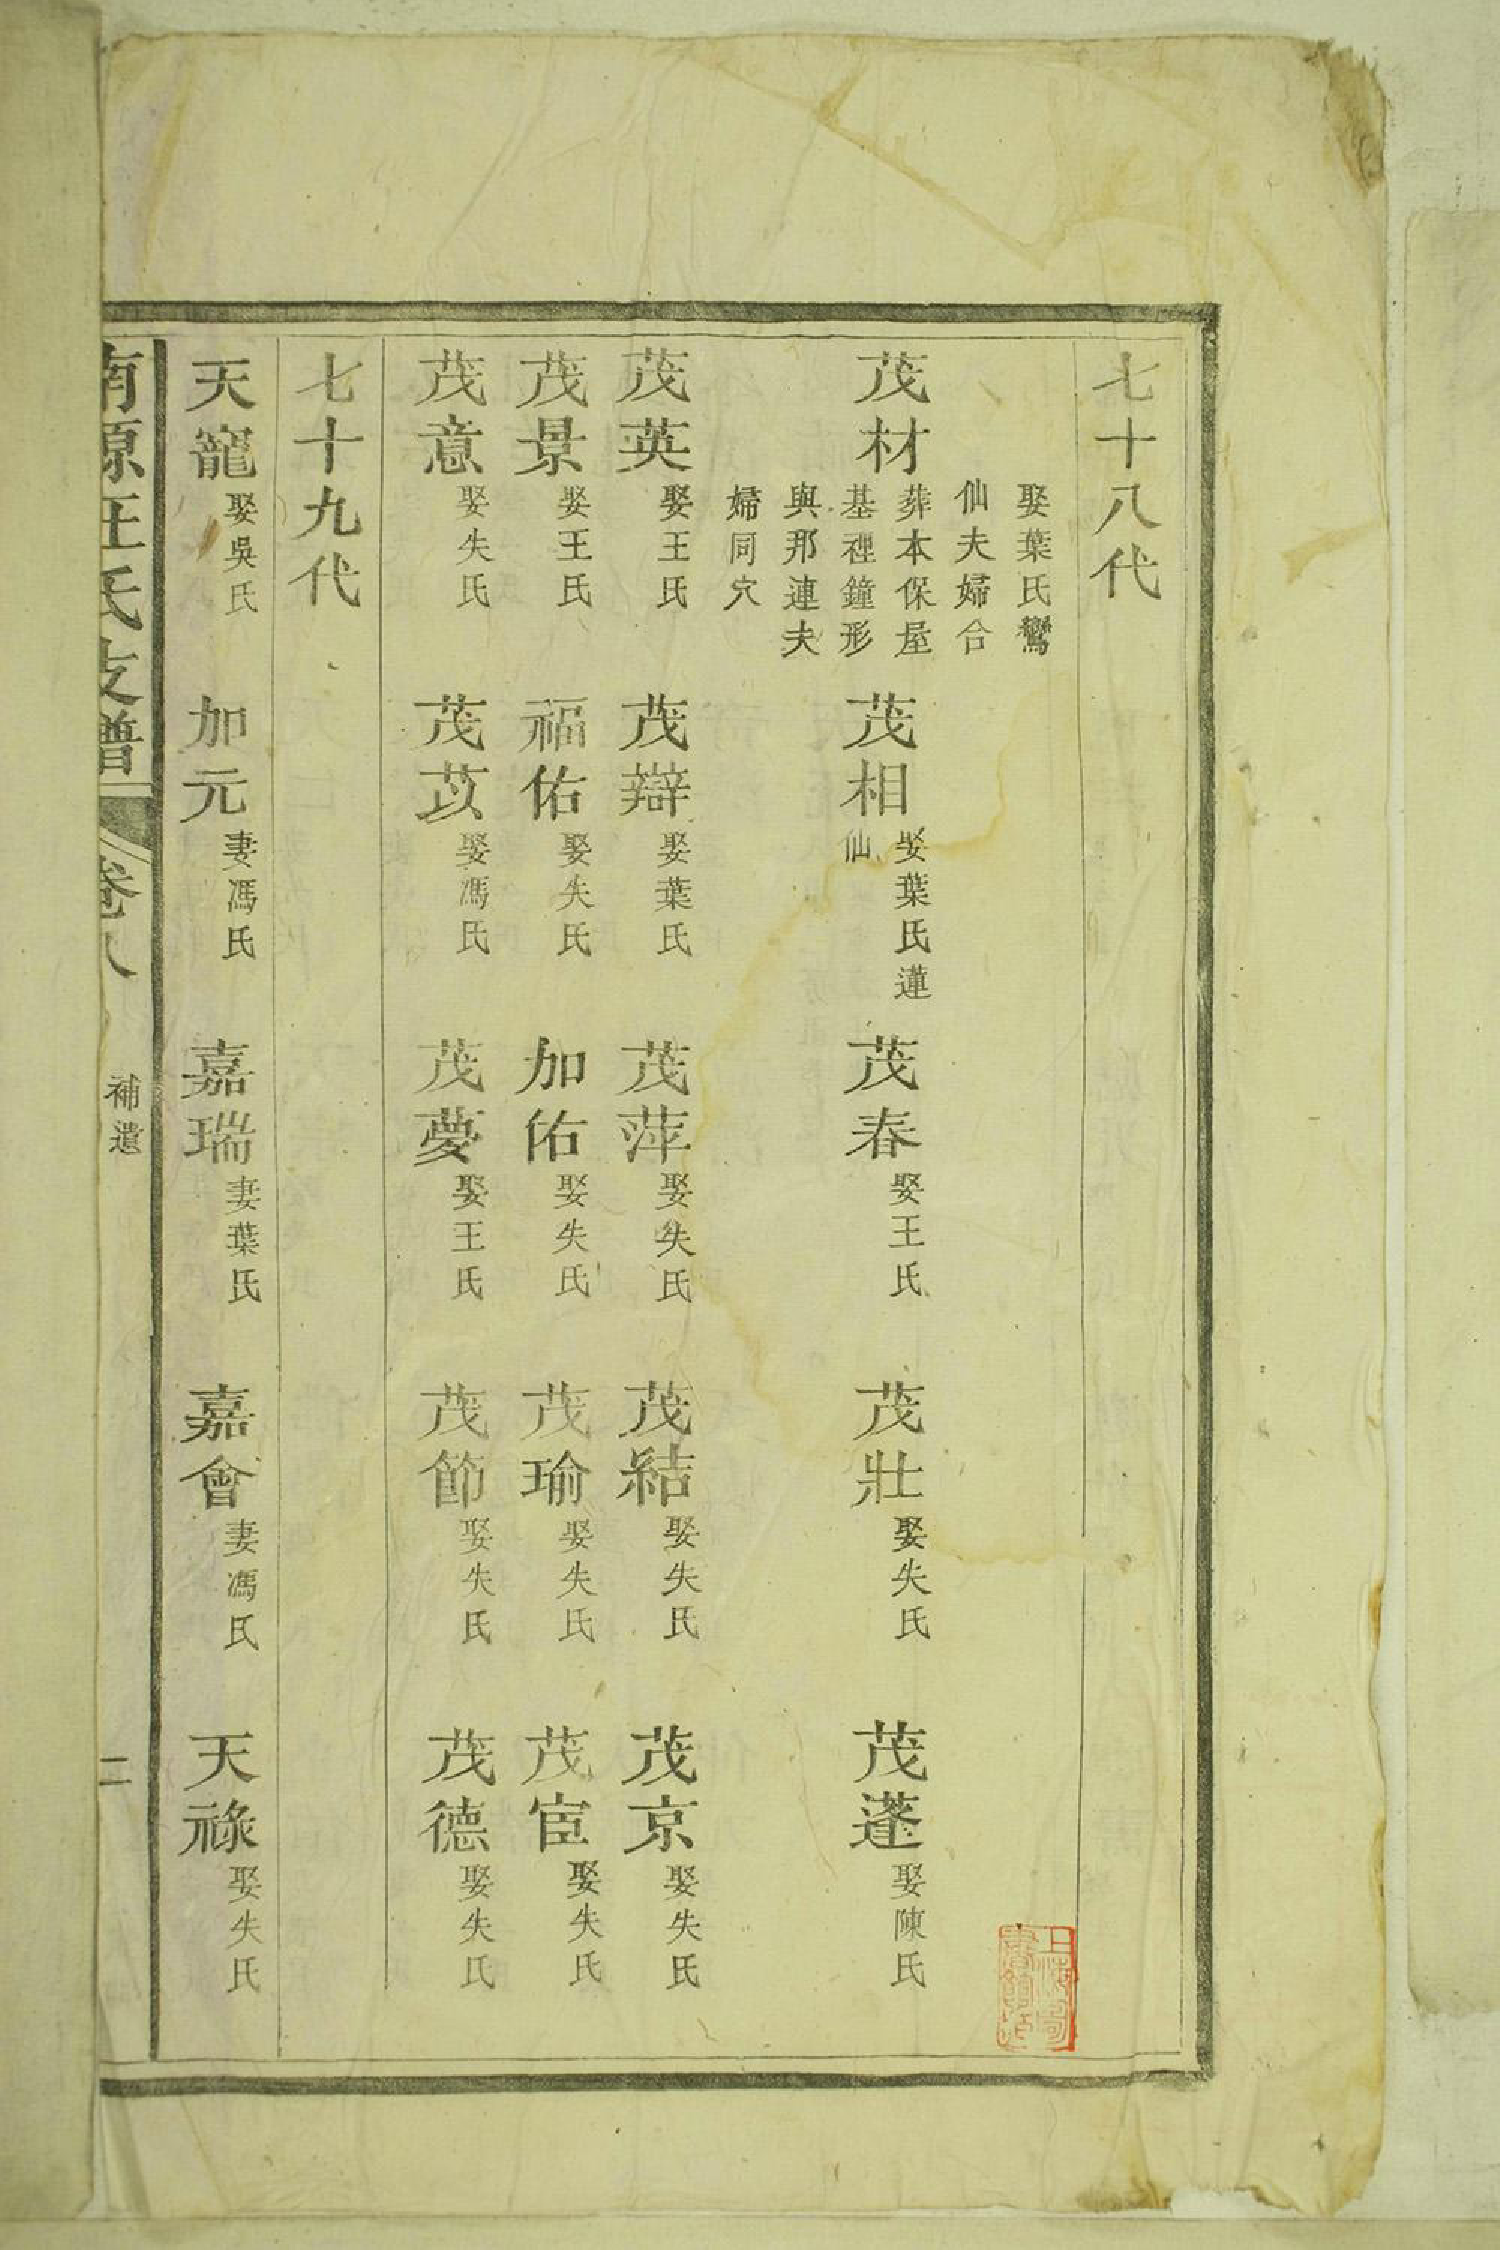 七十八代
茂材
娶葉氏鸞
仙夫婦合
葬本保屋
基裡鐘形
與邦連夫
婦同穴
茂相
娶葉氏蓮
仙
茂春 娶王氏
茂壯 娶失氏
茂蓬 娶陳氏
茂英 娶王氏
茂辯 娶葉氏
茂萍 娶失氏
茂結 娶失氏
茂京 娶失氏
茂景 娶王氏
福佑 娶失氏
加佑 娶失氏
茂瑜 娶失氏
茂宦 娶失氏
茂意 娶失氏
茂苡 娶馮氏
茂夢 娶王氏
茂節 娶失氏
茂德 娶失氏
七十九代
天寵 娶吳氏
加元 妻馮氏
嘉瑞 妻葉氏
嘉會 妻馮氏
天祿 娶失氏
南源汪氏支譜 卷八 補遺 二